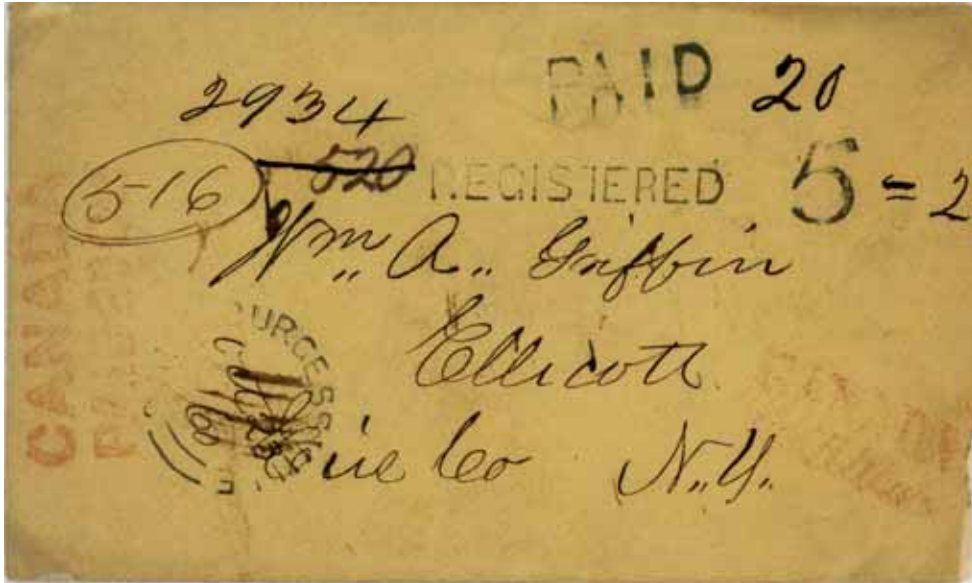 PAID 20
2934
516 520 REGISTERED 5 = 2
Wm. A. Griffin
Ellicott
Erie Co N.Y.
URGESS
CANADA